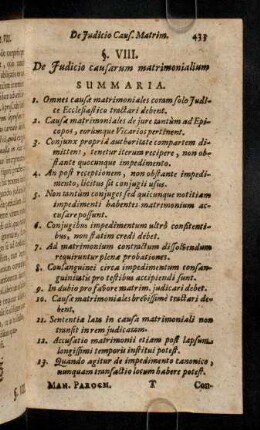 De Judicio Caus. Matrim. 433
§. VIII.
De Judicio causarum matrimonialium
SUMMARIA.
1. Omnes causæ matrimoniales coram solo Judi-
ce Ecclesiastico tractari debent.
2. Causæ matrimoniales de jure tantùm ad Epi-
copos, eorúmque Vicarios pertinent.
3. Conjunx propriâ authoritate compartem di-
mittens, tenetur iterum recipere, non ob-
stante quocunque impedimento.
4. An post receptionem, non obstante impedi-
mento, licitus sit conjugii usus.
5. Non tantùm conjuges sed quicunque notitiam
impedimenti habentes matrimonium ac-
cusare possunt.
6. Conjugibus impedimentum ultrò confitenti-
bus, non statim credi debet.
7. Ad matrimonium contractum dissolvendum
requiruntur plenæ probationes.
8. Consanguinei circa impedimentum consan-
guinitatis pro testibus accipiendi sunt.
9. In dubio pro favore matrim. judicari debet.
10. Causæ matrimoniales brevissimè tractari de-
bent.
11. Sententia lata in causa matrimoniali non
transit in rem judicatam.
12. Accusatio matrimonii etiam post lapsum
longissimi temporis institui potest.
13. Quando agitur de impedimento canonico,
nunquam transactio locum habere potest.
MAN. PAROCH. T Con-